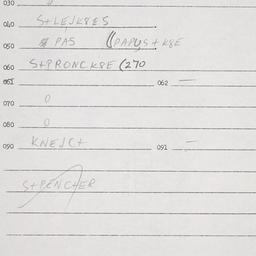 030
040 S+LEJK8ES
050 PAS (PAPYS+K8E
060 S+PRONCK8E (270
061 062 —
070 0
080 0
090 KNEJC+ 091 —
S+PENC+ER